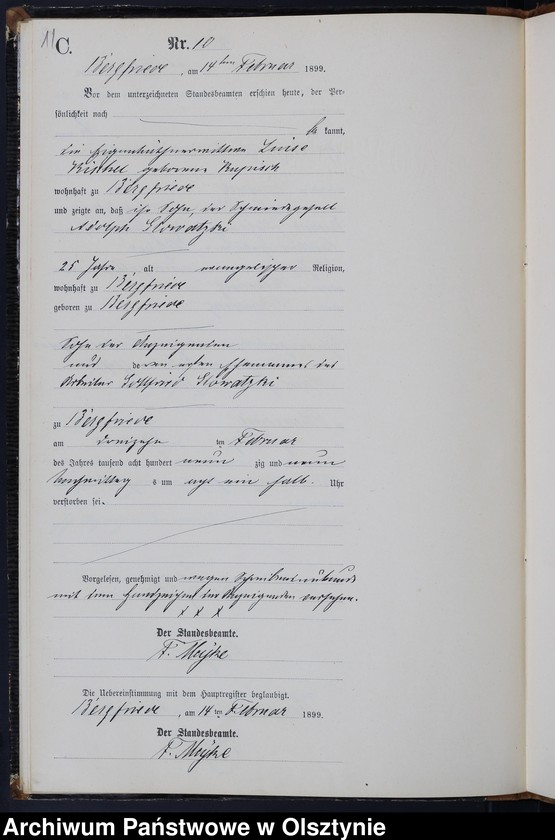 11
C.
Nr. 10
Bergfriede, am 14 ten Februar 1899.
Vor dem unterzeichneten Standesbeamten erschien heute, der Per-
sönlichkeit nach
be kannt,
die Eigenkäthnerwittwe Luise
geborene Kupisch
wohnhaft zu Bergfriede
und zeigte an, daß ihr Sohn, der Schmiedegesell
Adolph Slowatzki
25 Jahre alt evangelischer Religion,
wohnhaft zu Bergfriede
geboren zu Bergfriede
Sohn der Anzeigenden
und deren ersten Ehemannes des
Arbeiter Gottfried Slowatzki
zu Bergfriede
am dreizehn ten Februar
des Jahres tausend acht hundert neun zig und neun
Vormittag s um acht ein halb Uhr
verstorben sei.
Vorgelesen, genehmigt und wegen Schreibensunkunde
mit dem Handzeichen der Anzeigenden versehen.
x x x
Der Standesbeamte.
F. Meyke
Die Uebereinstimmung mit dem Hauptregister beglaubigt.
Bergfriede, am 14 ten Februar 1899.
Der Standesbeamte.
F. Meyke
Archiwum Państwowe w Olsztynie